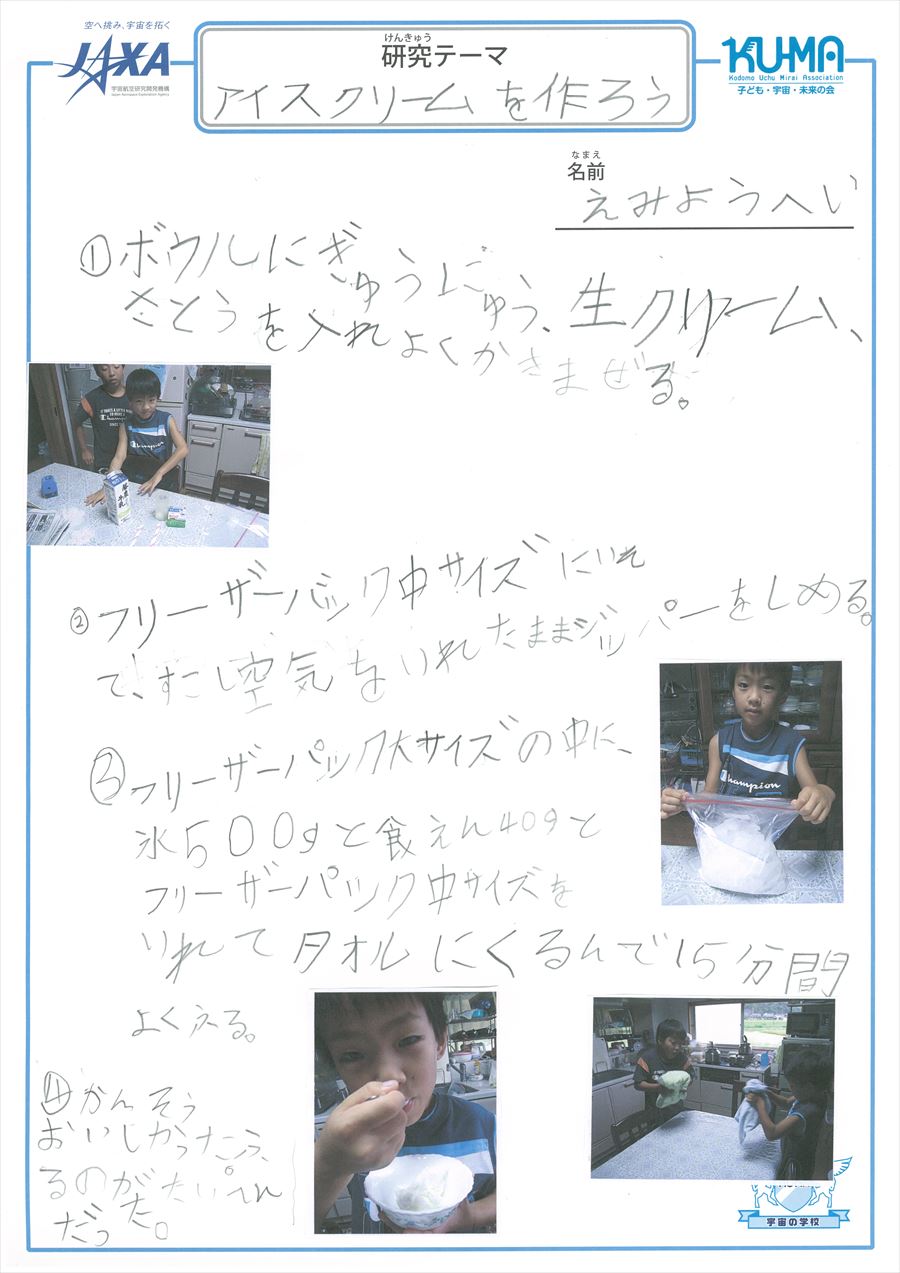 空へ挑み、宇宙を拓く
JAXA
宇宙航空研究開発機構
Japan Aerospace Exploration Agency
けんきゅう
研究テーマ
アイスクリームを作ろう
KU-MA
Kodomo Uchu Mirai Association
子ども・宇宙・未来の会
なまえ
名前
えみようへい
①ボウルにぎゅうにゅう、生クリーム、
さとうを入れよくかきまぜる。
Champion
牛乳
②フリーザーバック中サイズにいれ
て、すこし空気をいれたままジッパーをしめる。
③フリーザーパック大サイズの中に、
氷500gと食えん40gと
フリーザーパック中サイズを
いれてタオルにくるんで15分間
よくふる。
Champion
④かんそう
おいしかったこう、
るのがたいへん
だった。
宇宙の学校